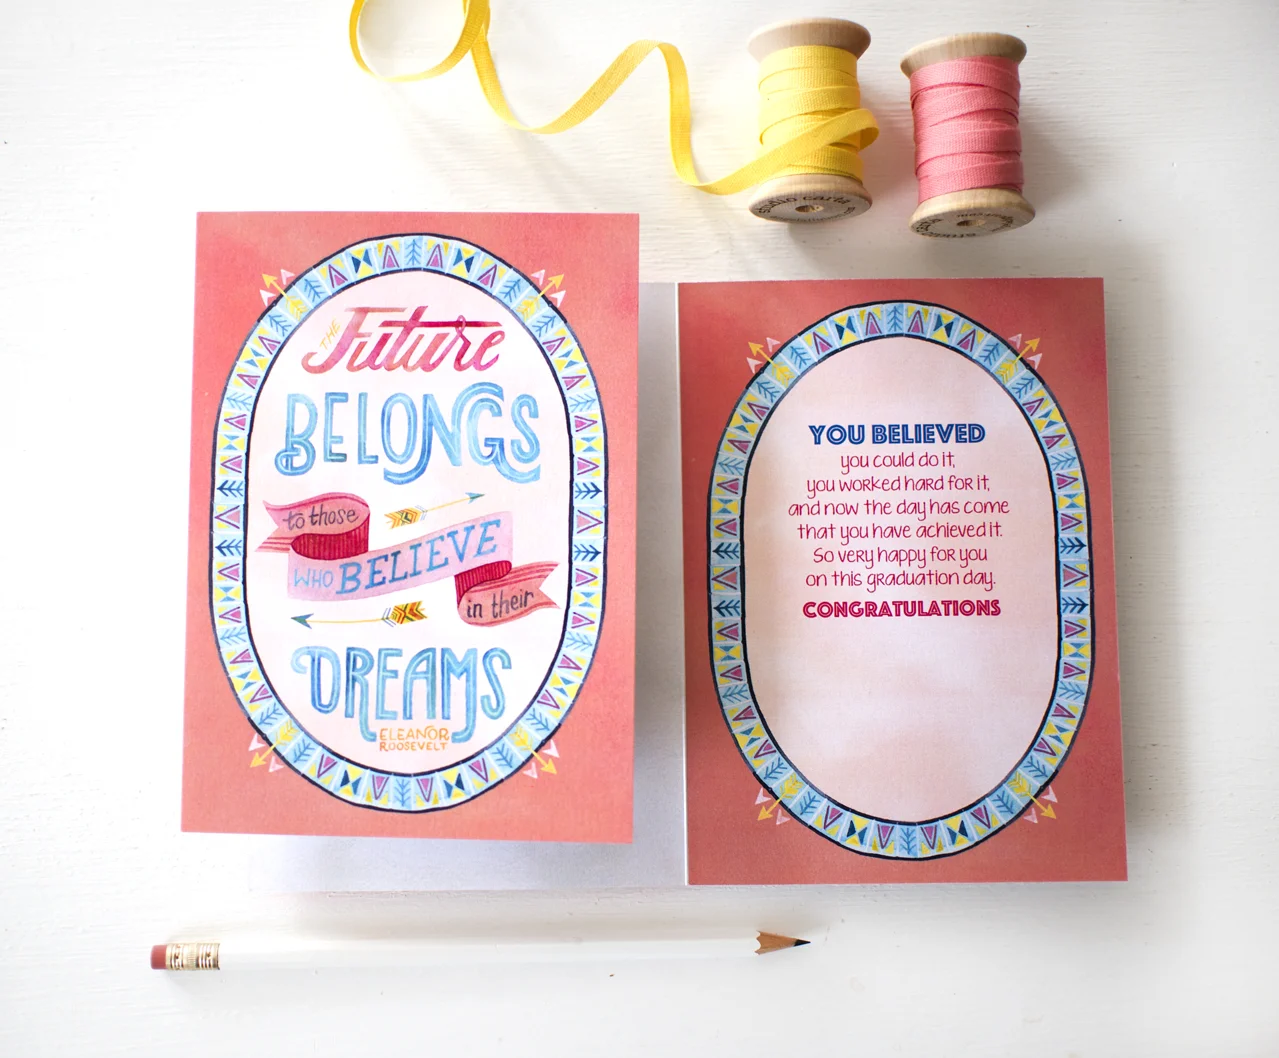 studio carta
THE
Future
BELONGS
to those
WHO BELIEVE
in their
DREAMS
ELEANOR
ROOSEVELT
YOU BELIEVED
you could do it,
you worked hard for it,
and now the day has come
that you have achieved it.
So very happy for you
on this graduation day.
CONGRATULATIONS